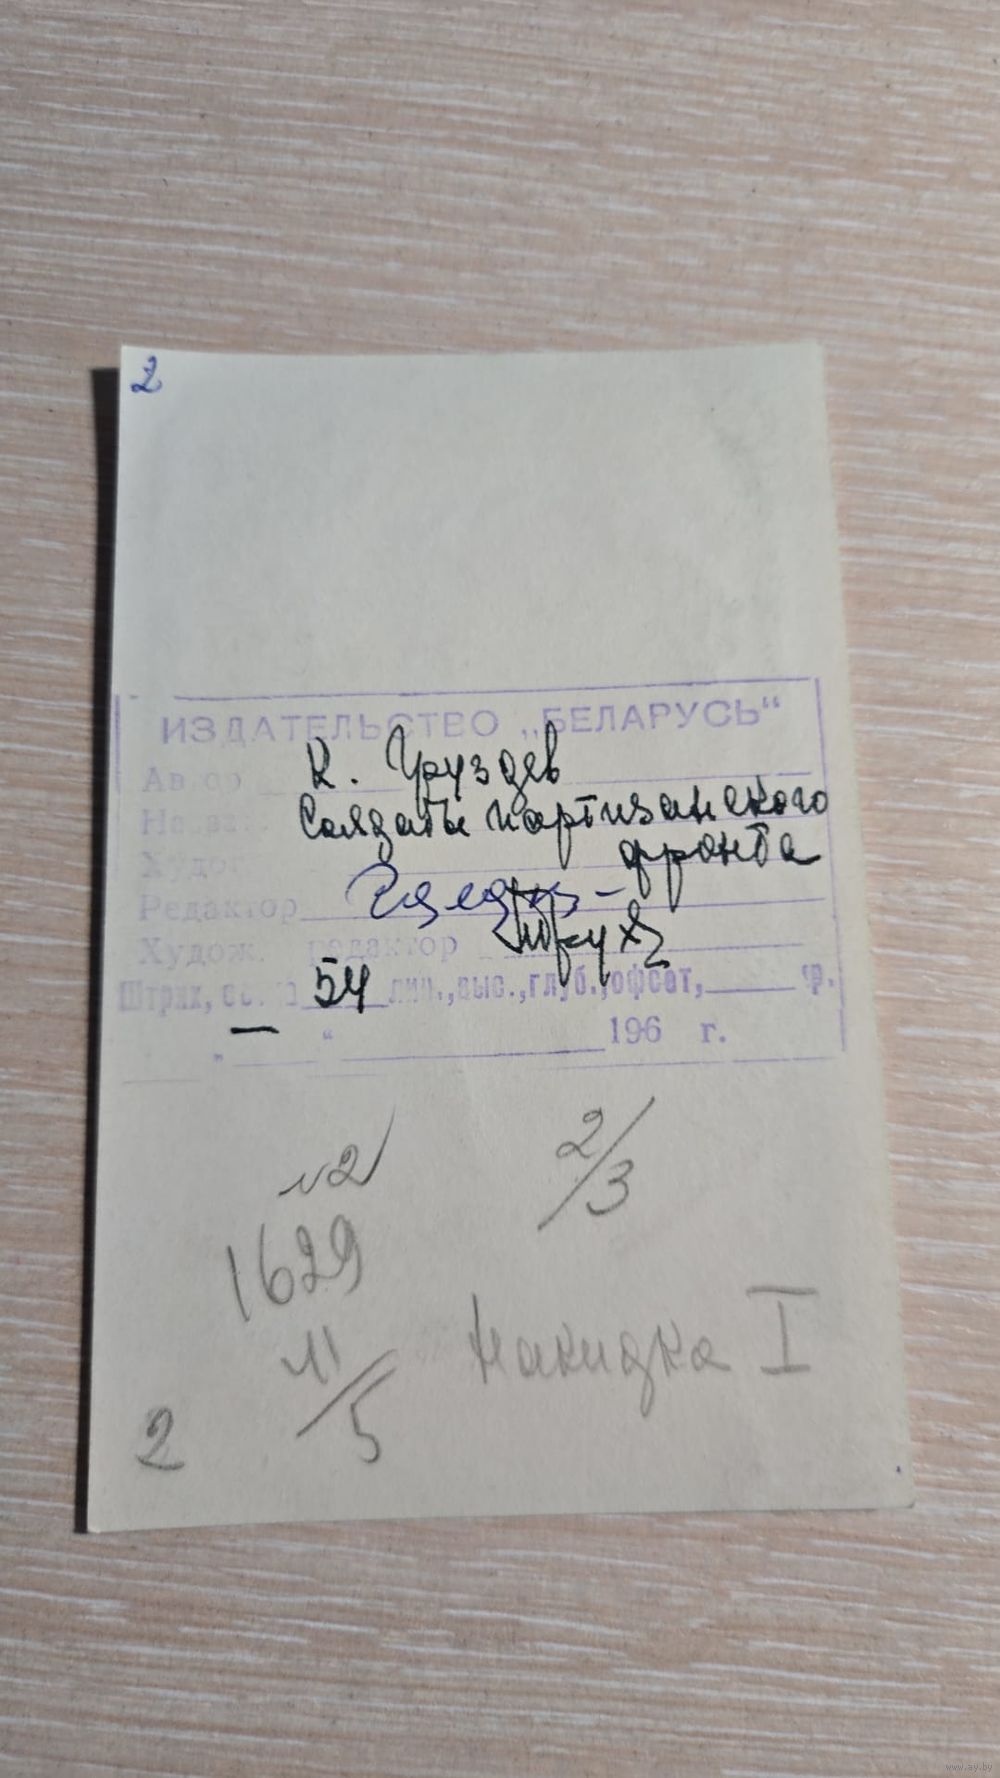 2
ИЗДАТЕЛЬСТВО „БЕЛАРУСЬ“
Автор К. Груздев
Солдаты партизанского
фронта
Редактор
Худож. редактор
Штрих, 54 лин., выс., глуб., офсет,
„ — “ 196 г.
№2 2/3
1629
11/5 Накидка I
2
www.ay.by